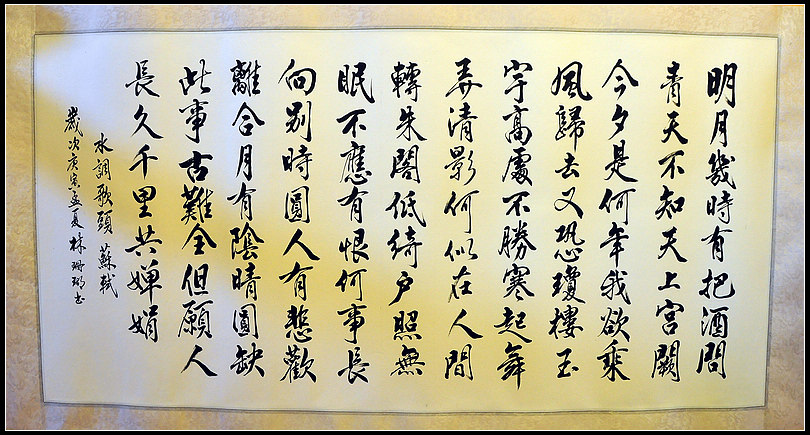 明月幾時有把酒問
青天不知天上宮闕
今夕是何年我欲乘
風歸去又恐瓊樓玉
宇高處不勝寒起舞
弄清影何似在人間
轉朱閣低綺户照無
眠不應有恨何事長
向别時圓人有悲歡
離合月有陰晴圓缺
此事古難全但願人
長久千里共嬋娟
水調歌頭 蘇軾
歲次庚寅孟夏林珊